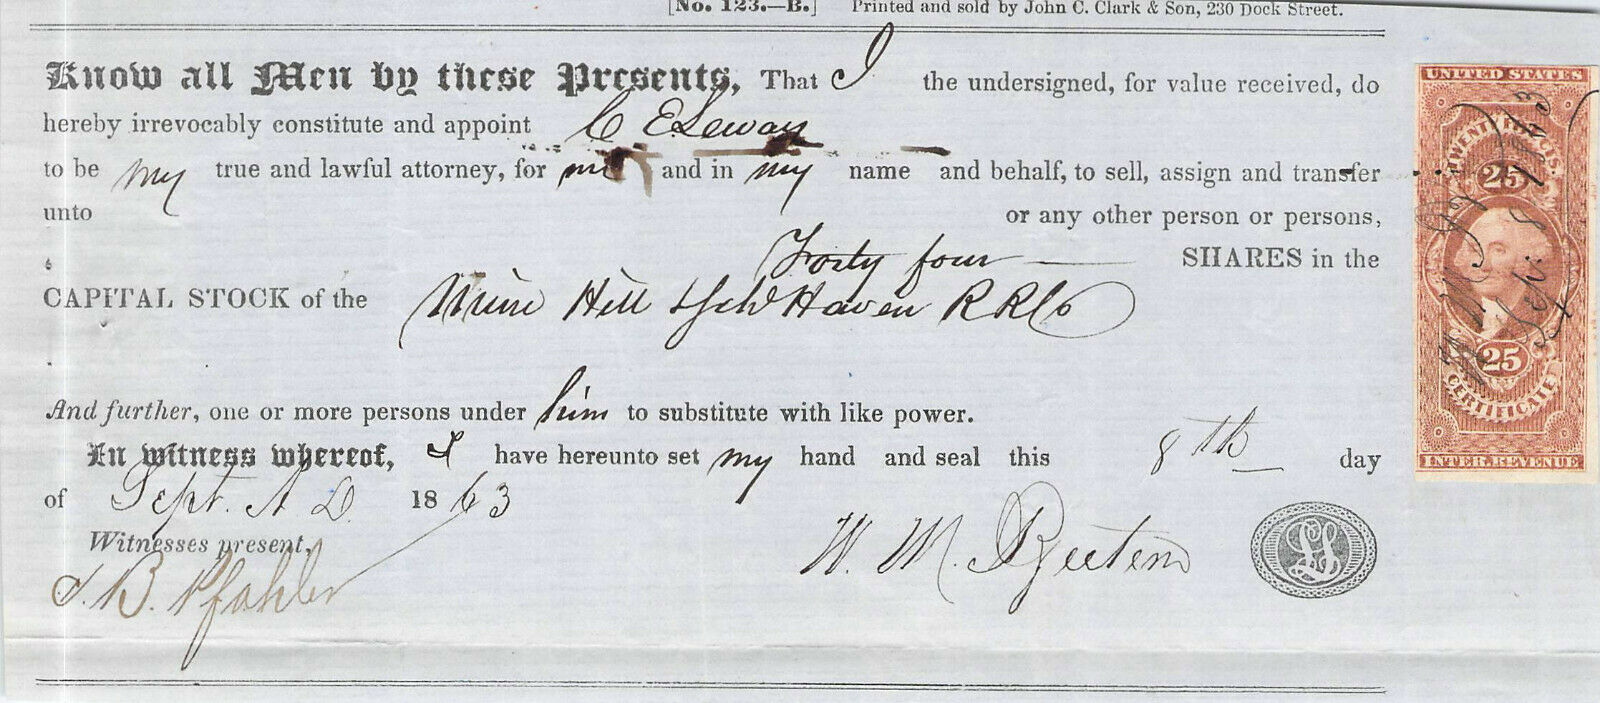 [No. 123.—B.] Printed and sold by John C. Clark & Son, 230 Dock Street.
Know all Men by these Presents, That I the undersigned, for value received, do
hereby irrevocably constitute and appoint C E Seway
to be my true and lawful attorney, for me and in my name and behalf, to sell, assign and transfer
unto or any other person or persons,
Forty four SHARES in the
CAPITAL STOCK of the Mine Hill & Sch Haven R R Co
And further, one or more persons under him to substitute with like power.
In witness whereof, I have hereunto set my hand and seal this 8th day
of Sept. A D. 1863
Witnesses present,
W. M.
J. B. Pfahler
LS
UNITED STATES
TWENTY FIVE CTS.
25
25
CERTIFICATE
INTER. REVENUE
W M
Sept. 8 1863